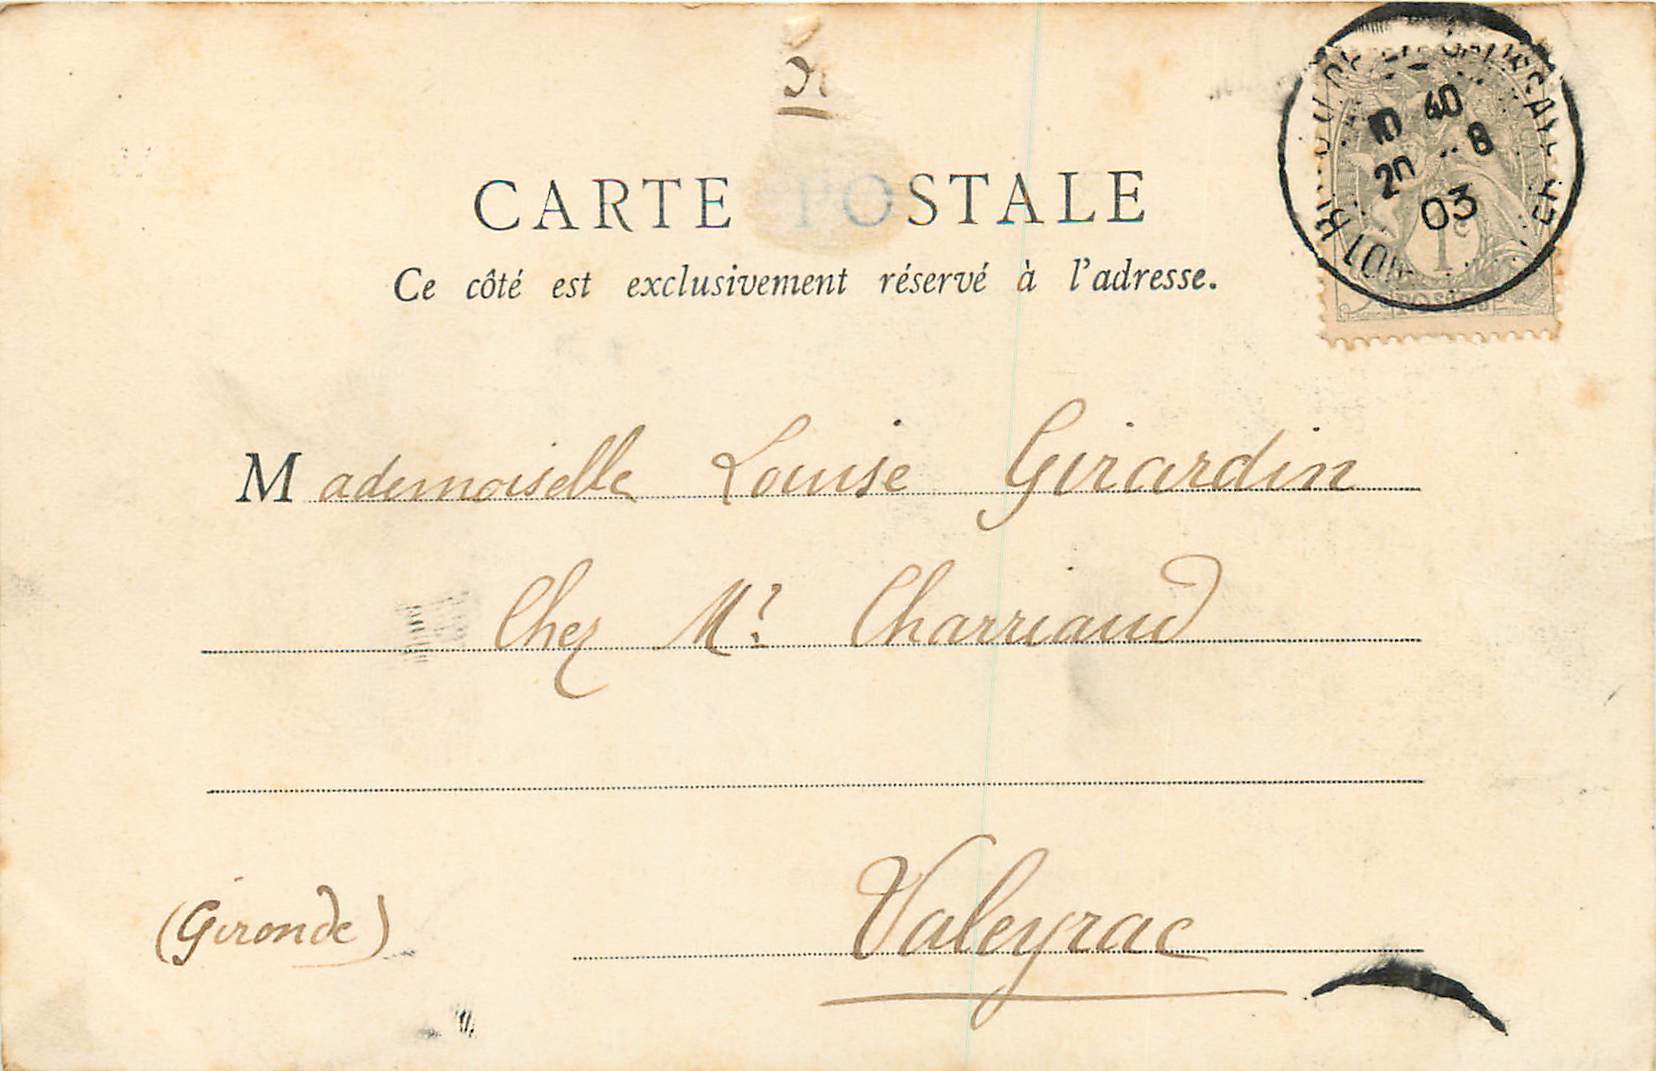 10 40
20 8
03
1c
POSTES
CARTE POSTALE
Ce côté est exclusivement réservé à l'adresse.
Mademoiselle Louise Girardin
Chez Mr Charriaud
Valeyrac
(Gironde)